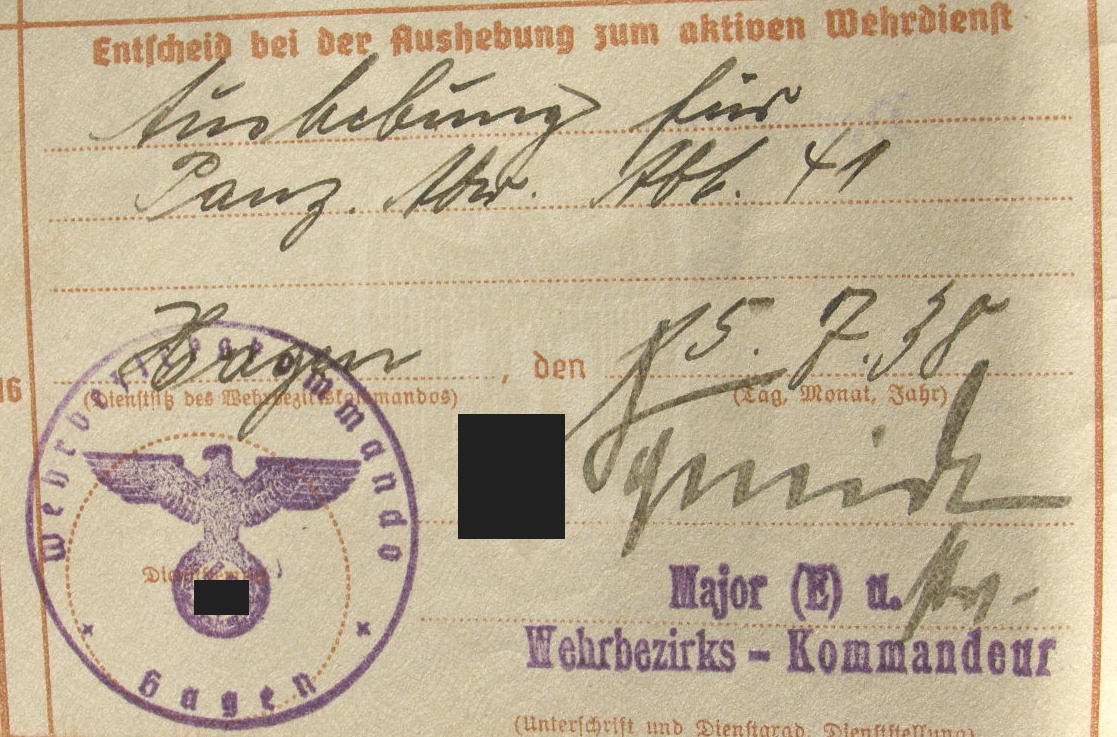 Entscheid bei der Aushebung zum aktiven Wehrdienst
Aushebung für
Panz. Abw. Abt. 41
Hagen, den 15.7.38
16
(Dienstsitz des Wehrbezirkskommandos)
(Tag, Monat, Jahr)
Wehrbezirkskommando
Hagen
Major (E) u.
Wehrbezirks-Kommandeur
(Unterschrift und Dienstgrad, Dienststellung)